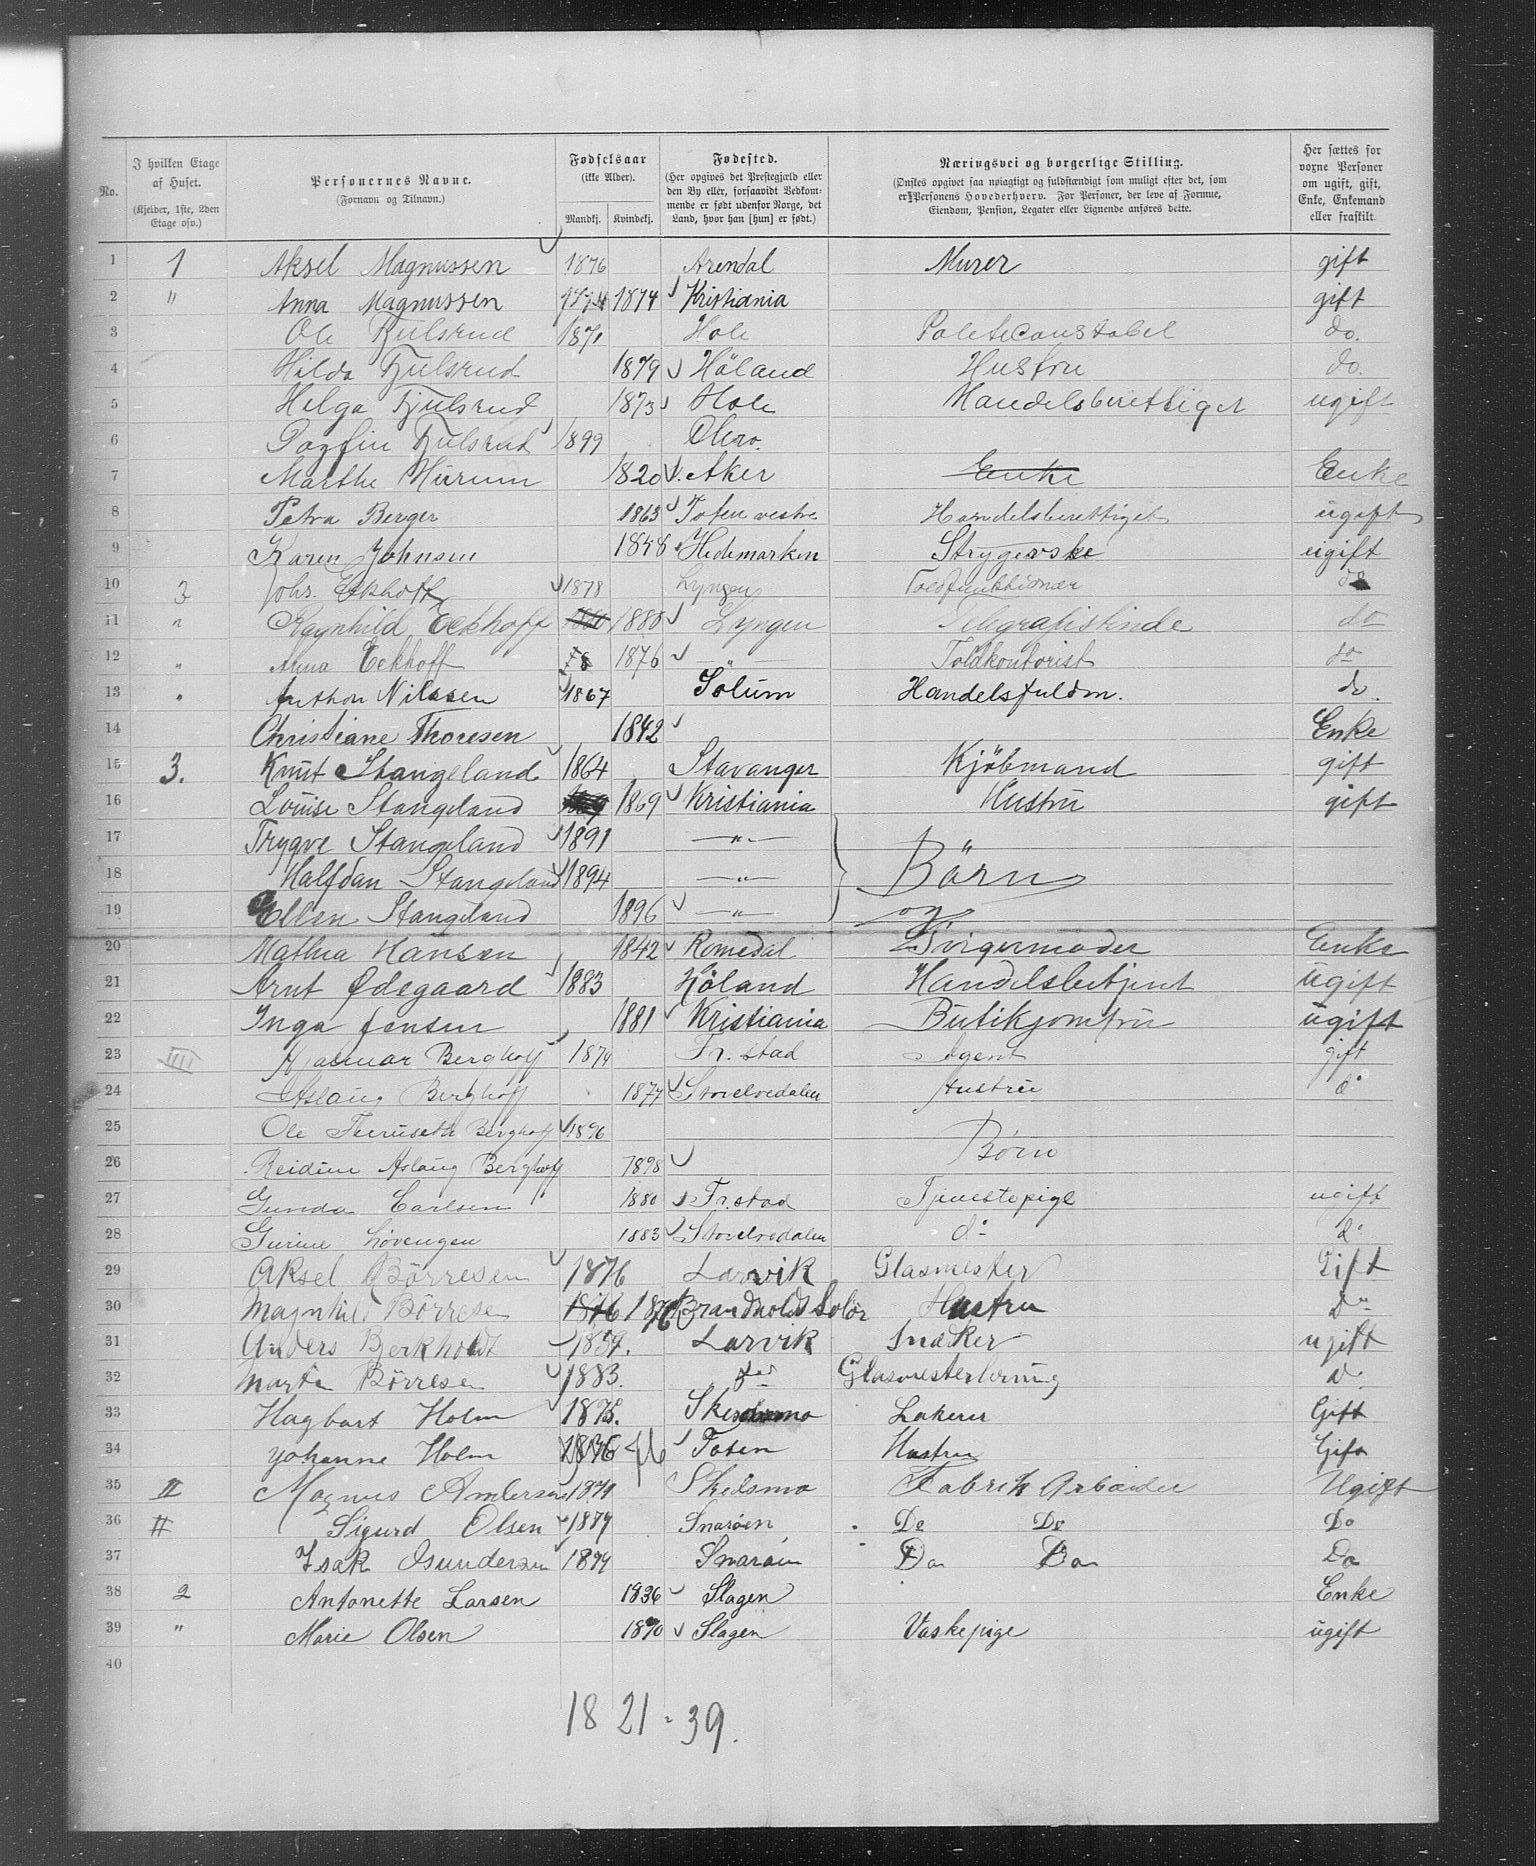 No. | I hvilken Etage af Huset. (Kjelder, 1ste, 2den Etage osv.) | Personernes Navne. (Fornavn og Tilnavn.) | Fødselsaar (ikke Alder). Mandkj. | Kvindekj. | Fødested. (Her opgives det Prestegjæld eller den By eller, forsaavidt Vedkommende er født udenfor Norge, det Land, hvor han [hun] er født.) | Næringsvei og borgerlige Stilling. (Ønskes opgivet saa nøiagtigt og fuldstændigt som muligt efter det, som er Personens Hovederhverv. For Personer, der leve af Formue, Eiendom, Pension, Legater eller Lignende anføres dette. | Her sættes for voxne Personer om ugift, gift, Enke, Enkemand eller fraskilt.
1 1 Aksel Magnussen 1876 Arendal Murer gift
2 " Anna Magnussen 1874 1874 Kristiania gift
3 Ole Fjulsrud 1871 Hole Politiconstabel do.
4 Hilda Fjulsrud 1879 Höland Hustru do.
5 Helga Fjulsrud 1873 Hole Handelsberettiget ugift
6 Dagfin Fjulsrud 1899
7 Marthe Hurum 1820 Aker Enke Enke
8 Petra Berger 1863 Toten vestre Handelsberettiget ugift
9 Karen Johnsen 1848 Hedemarken Strygerske ugift
10 3 Johs. Eckhoff 1878 Lyngen Toldfunktionær do
11 " Ragnhild Eckhoff 1880 Lyngen Telegrafistinde do
12 " Anna Eckhoff 78 1876 — Toldkontorist do
13 " Anthon Nilssen 1867 Solum Handelsfuldm. do.
14 Christiane Thoresen 1842 Enke
15 3. Knut Stangeland 1864 Stavanger Kjöbmand gift
16 Louise Stangeland 1869 Kristiania Hustru gift
17 Trygve Stangeland 1891 —"—
18 Halfdan Stangeland 1894 —"— Börn
19 Ellen Stangeland 1896 —"— og
20 Mathea Hansen 1842 Romedal Svigermoder Enke
21 Arnt Ødegaard 1883 Höland Handelsbetjent ugift
22 Inga Jensen 1881 Kristiania Butikjomfru ugift
23 IIII Hjalmar Berghoff 1874 Fr.stad Agent gift
24 Aslaug Berghoff 1877 Storelvedalen Hustru do
25 Ole Berghoff 1896
26 Reidun Aslaug Berghoff 1898 Børn
27 Gunda Carlsen 1880 Fr.stad Tjenestepige ugift
28 Gurine Løvengen 1883 Storelvedalen do do
29 Aksel Börresen 1876 Larvik Glasmester Gift
30 Magnhild Börresen 1876 1876 Brandvold Solör Hustru Do
31 Anders Bjerkholdt 1859. Larvik Snedker ugift
32 Martin Börresen 1883. do Glasmesterlerling do
33 Hagbart Holm 1875. Skedsmo Lakerer Gift
34 Johanne Holm 1876 76 Toten Hustru Gift
35 II Magnus Andersen 1879 Skedsmo Fabrik Arbeider Ugift
36 II Sigurd Olsen 1879 Snaröen Do Do Do
37 Isak Osmundersen 1879 Snaröen Do Do Do
38 2 Antonette Larsen 1836 Slagen Enke
39 " Marie Olsen 1870 Slagen Vaskepige ugift
40
18 21 - 39.